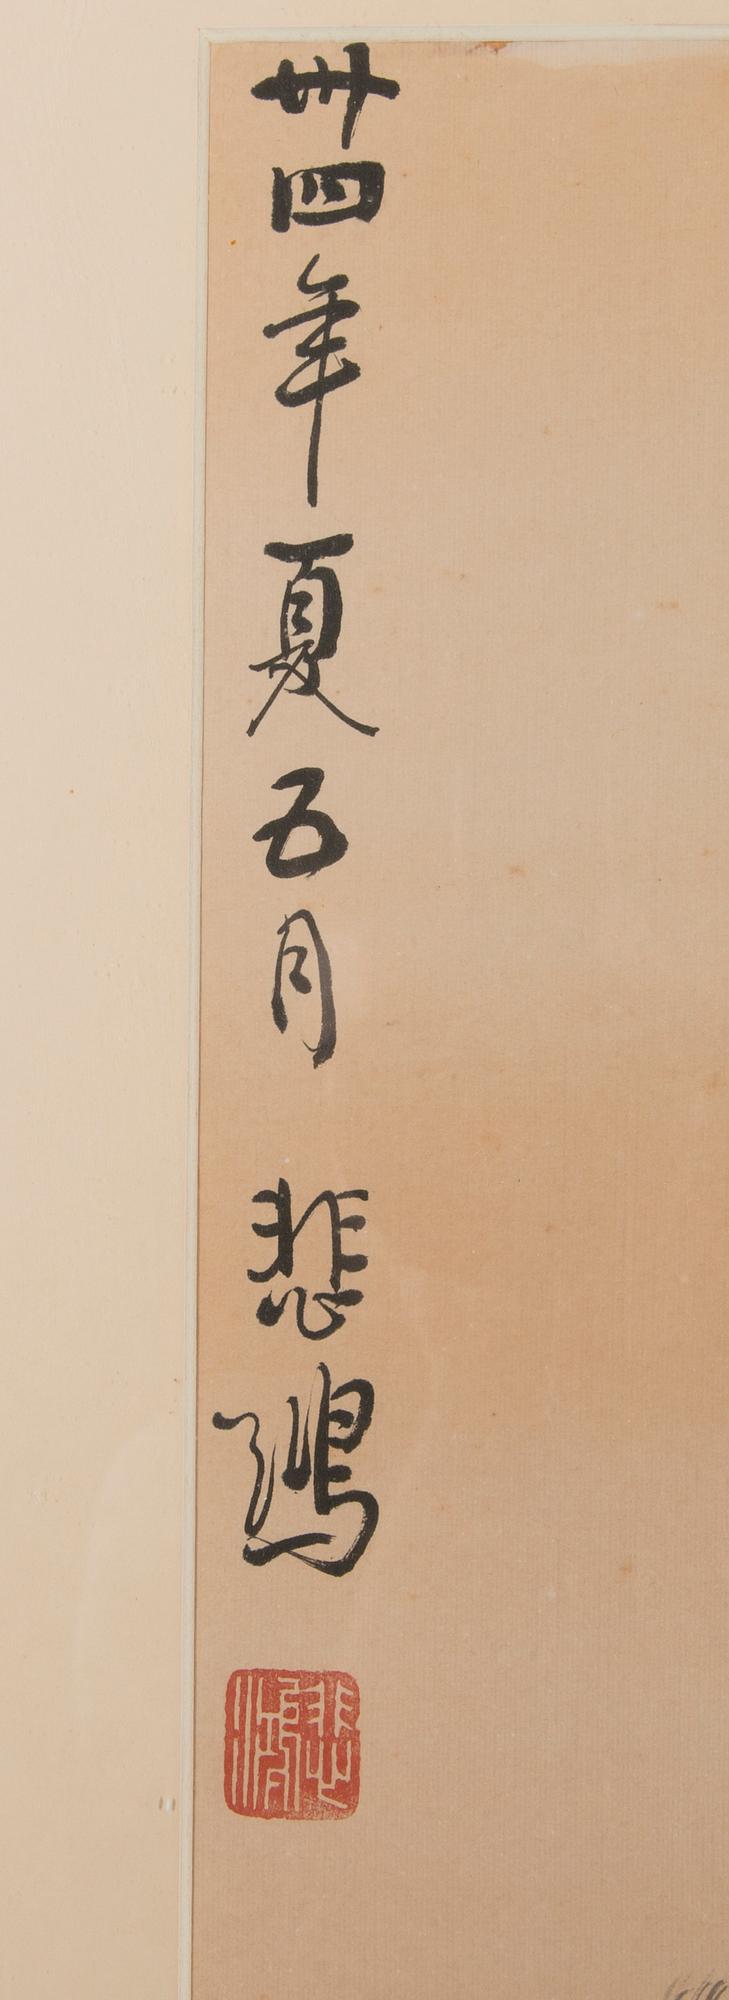 卅四年夏五月 悲鴻
悲鴻